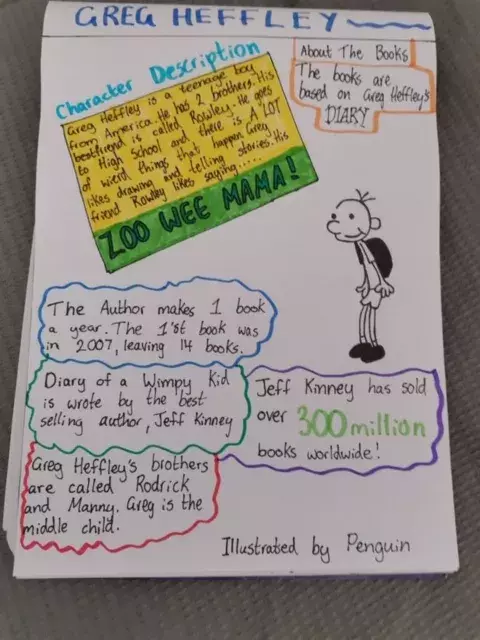 GREG HEFFLEY
Character Description
Greg Heffley is a teenage boy
from America. He has 2 brothers. His
bestfriend is called Rowley. He goes
to High School and there is A LOT
of wierd things that happen. Greg
likes drawing and telling stories. His
friend Rowley likes saying.....
ZOO WEE MAMA!
About The Books
The books are
based on Greg Heffley's
DIARY
The Author makes 1 book
a year. The 1'st book was
in 2007, leaving 14 books.
Diary of a Wimpy Kid
is wrote by the best
selling author, Jeff Kinney
Jeff Kinney has sold
over 300 million
books worldwide!
Greg Heffley's brothers
are called Rodrick
and Manny. Greg is the
middle child.
Illustrated by Penguin